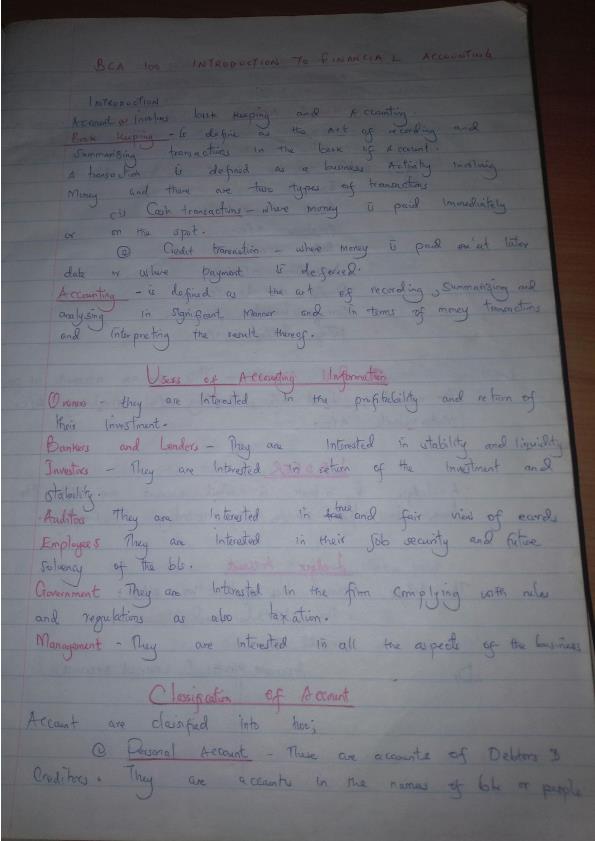 BCA 100 INTRODUCTION TO FINANCIAL ACCOUNTING
INTRODUCTION
Account Involves book keeping and Accounting
Book keeping - is define as the art of recording and
Summarizing transactions in the book of Account.
A transaction is defined as a business Activity Involving
Money and there are two types of transactions
(i) Cash transactions - where money is paid Immediately
or on the spot.
Credit transaction - where money is paid at later
date or where payment is deferred.
Accounting - is defined as the art of recording, Summarizing and
analysing in significant Manner and in terms of money transactions
and interpreting the result thereof.
Users of Accounting Information
Owners - they are Interested in the profitability and return of
their Investment.
Bankers and Lenders - They are Interested in stability and liquidity
Investors - They are Interested in return of the Investment and
stability.
Auditors They are Interested in true and fair view of
Employees They are Interested in their Job security and future
solvency of the
Government They are Interested In the firm Complying with rules
and regulations as also taxation.
Management - They are interested in all the aspects of the business
Classification of Account
Account are classified into
Personal Account - These are accounts of Debtors &
Creditors. They are accounts in the names of or people